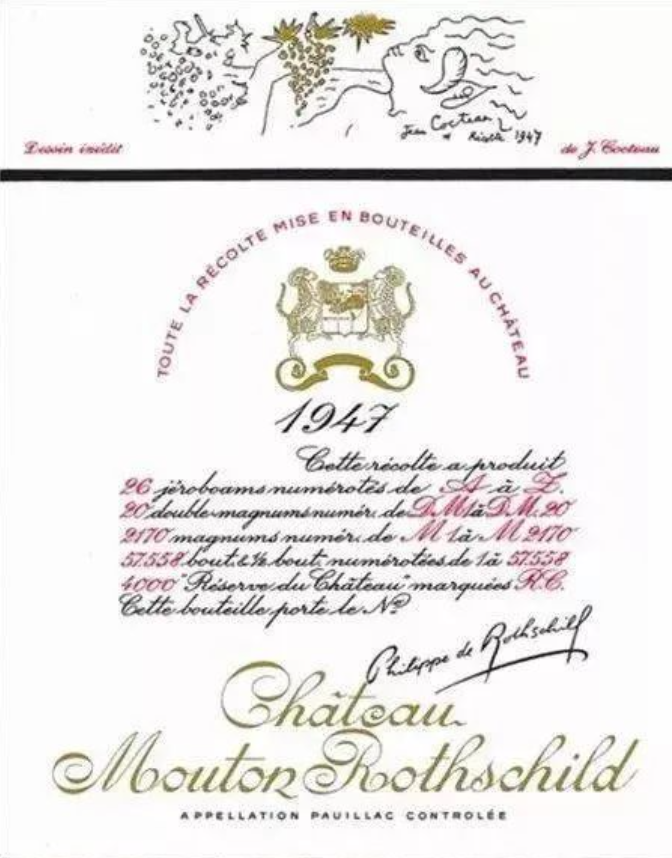 Jean Cocteau
* Récolte 1947
Dessin inédit
de J. Cocteau
TOUTE LA RÉCOLTE MISE EN BOUTEILLES AU CHÂTEAU
1947
Cette récolte a produit
26 jéroboams numérotés de A à Z.
20 double-magnums numér. de D.M. 1 à D.M. 20
2170 magnums numér. de M 1 à M 2170
57.558 bout. & ½ bout. numérotées de 1 à 57.558
4000 "Réserve du Château" marquées R.C.
Cette bouteille porte le Nº
Philippe de Rothschild
Château
Mouton Rothschild
APPELLATION PAUILLAC CONTROLÉE